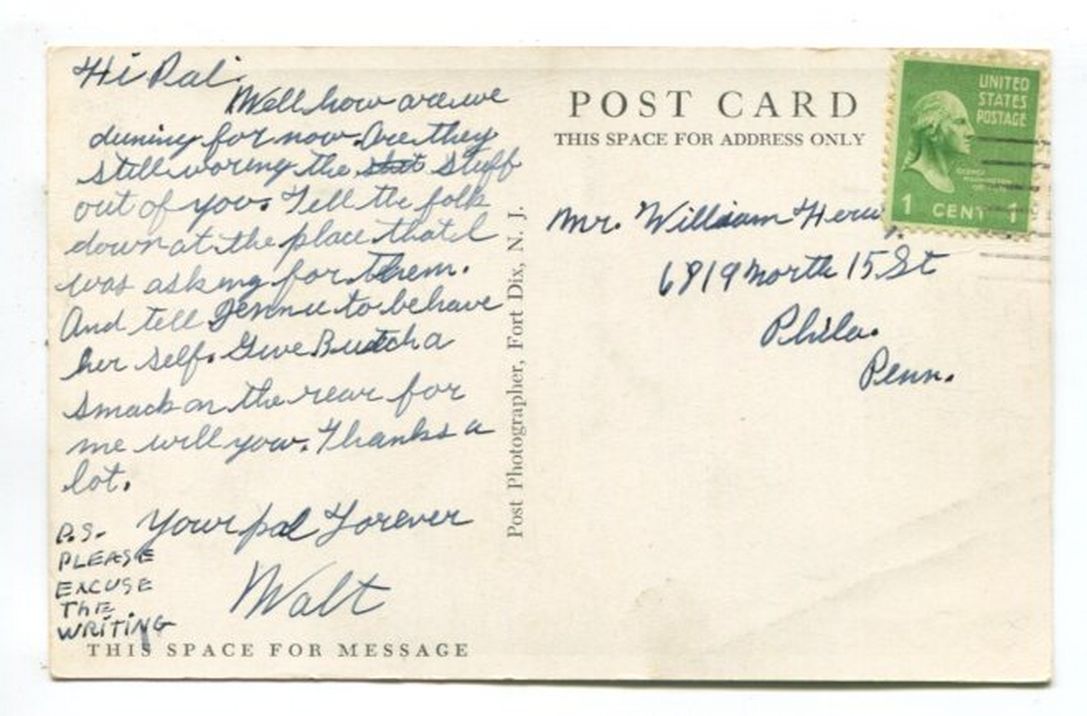 Hi Pal.
Well how are we
duning for now. Are they
still woring the stuff
out of you. Tell the folk
down at the place that I
was asking for them.
And tell Jennie to behave
her self. Give Butch a
smack on the rear for
me will you. Thanks a
lot.
Your pal Forever
Walt
P.S.
PLEASE
EXCUSE
THE
WRITING
THIS SPACE FOR MESSAGE
Post Photographer, Fort Dix, N. J.
POST CARD
THIS SPACE FOR ADDRESS ONLY
UNITED
STATES
POSTAGE
1 CENT 1
Mr. William
6819 North 15 St
Phila.
Penn.